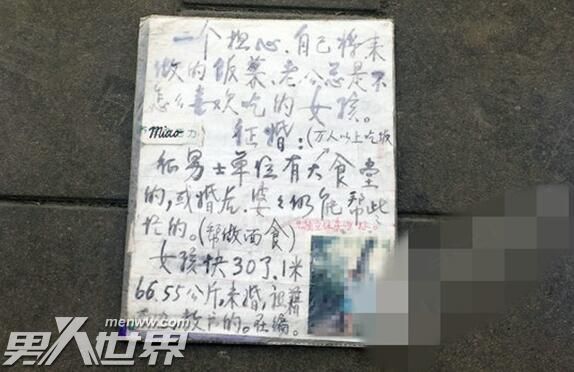 一个担心,自己将来
做的饭菜,老公总是不
怎么喜欢吃的女孩。
Miao 力
征婚:(万人以上吃饭
征男士单位有大食堂
的,或婚后,婆々仍能帮些
忙的。(帮做面食)
女孩快30了.1米
66.55公斤.未婚.祖籍
的.在编。
menww.com
男人世界